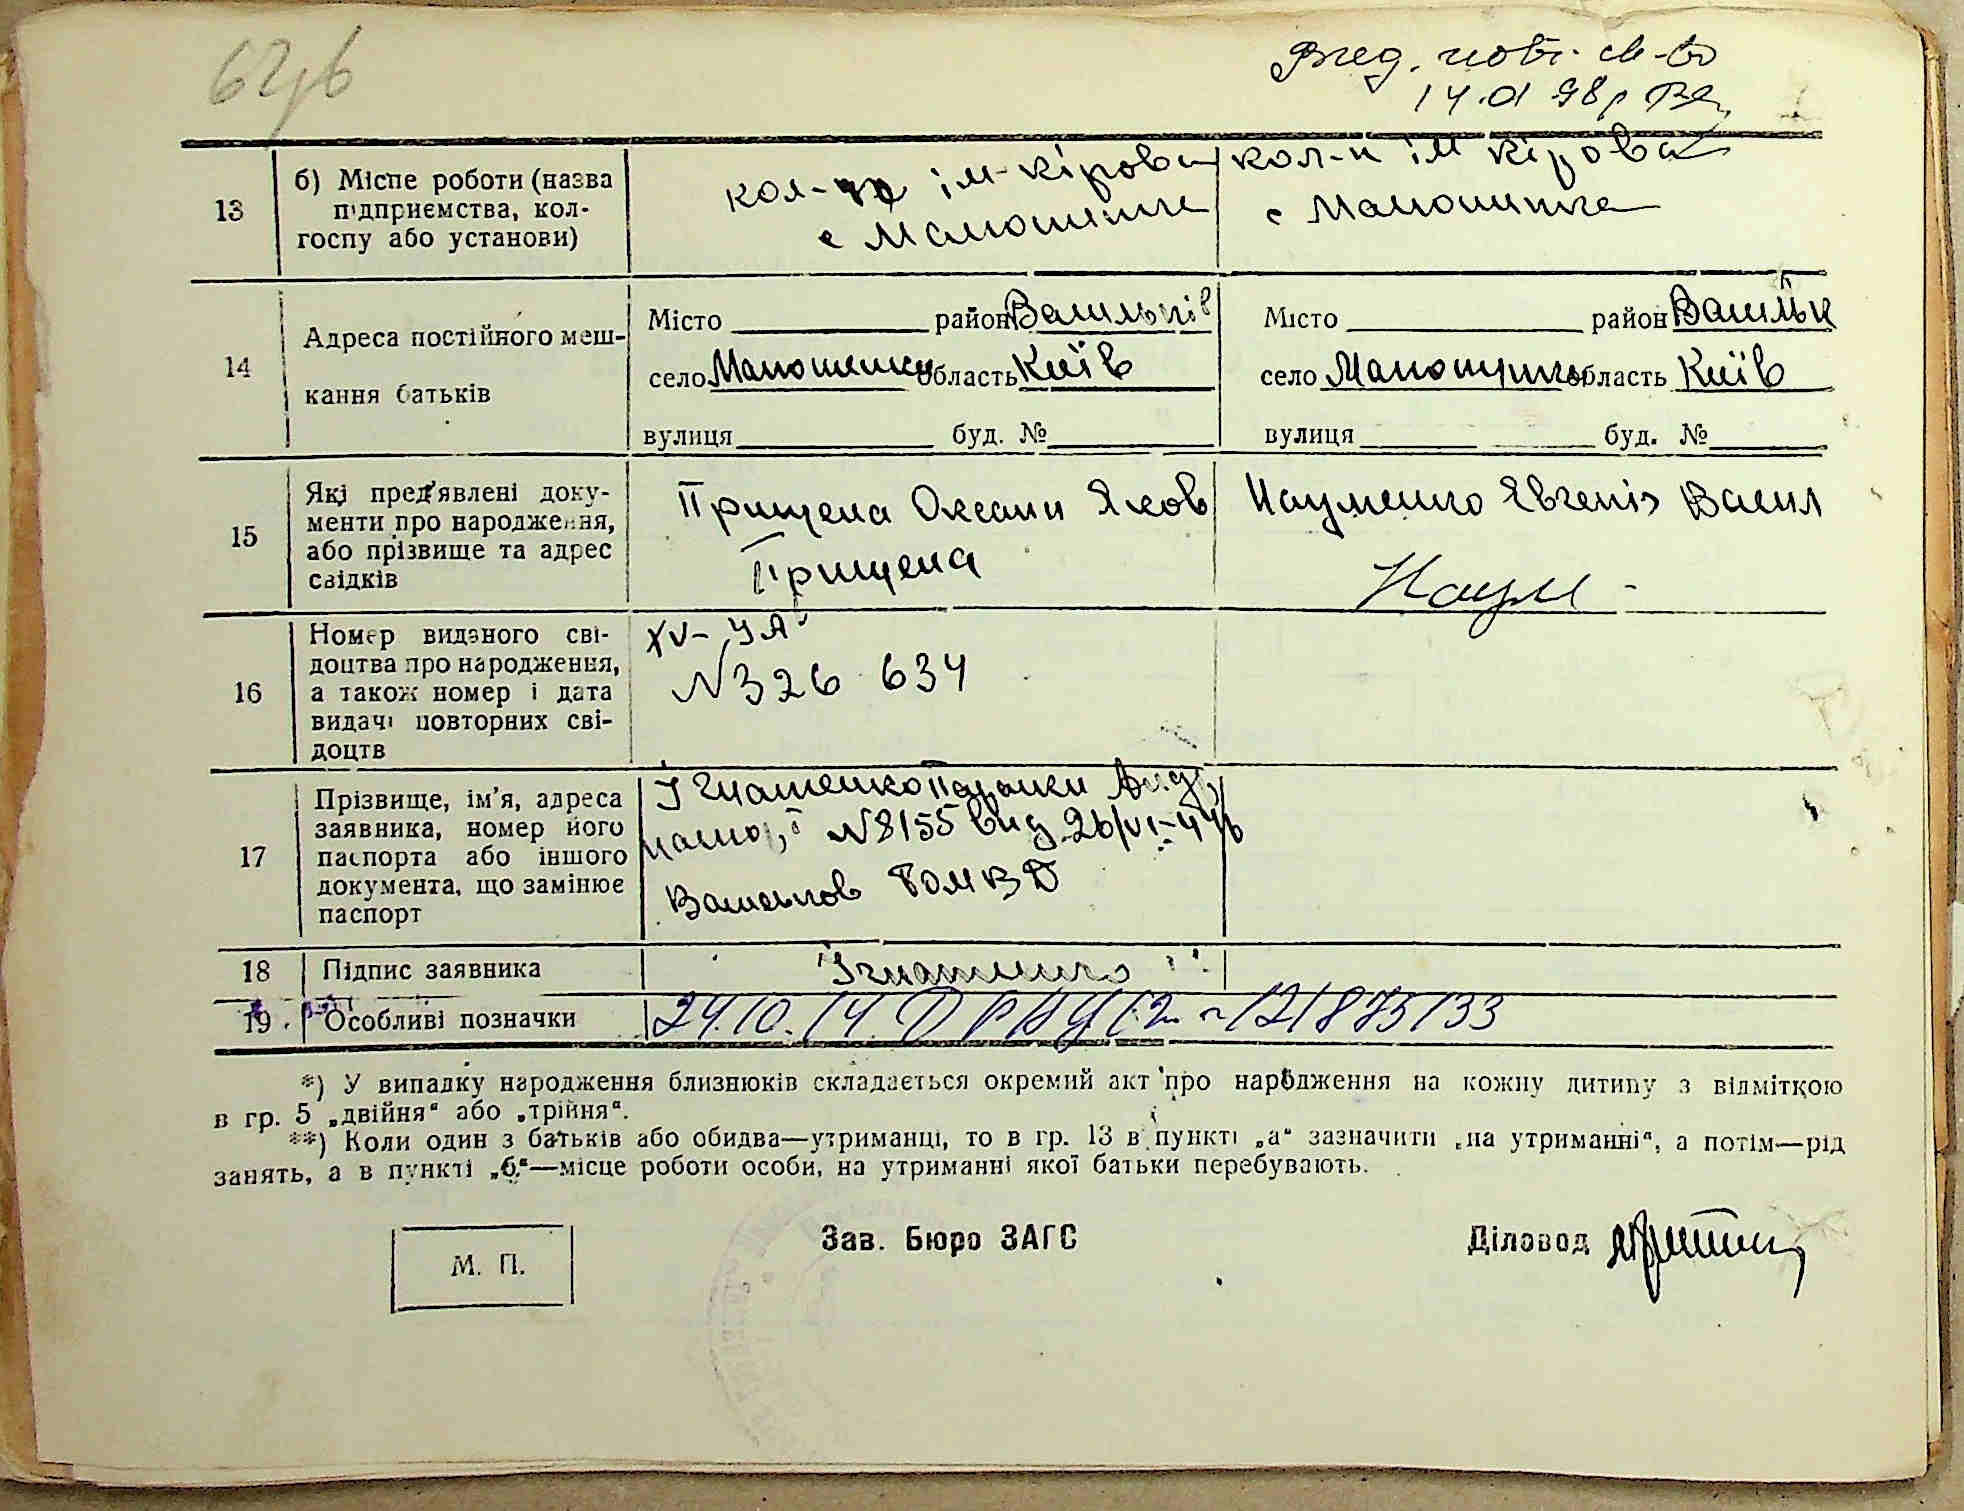 62дб
Вид. повт. св-во
14.01 98р
13
б) Місце роботи (назва
підприємства, кол-
госпу або установи)
кол-п ім-кірова
с Малютинка
кол-п ім кірова
с Малютинка
14
Адреса постійного меш-
кання батьків
Місто район Васильків
село Малютинка область Київ
вулиця буд. №
Місто район Васильк
село Малютинка область Київ
вулиця буд. №
15
Які пред'явлені доку-
менти про народження,
або прізвище та адрес
свідків
Прищепа Оксани Яков
Прищепа
Науменко Явгенія Васил
Наум
16
Номер виданого сві-
доцтва про народження,
а також номер і дата
видачі повторних сві-
доцтв
XV-УА
N 326 634
17
Прізвище, ім'я, адреса
заявника, номер його
паспорта або іншого
документа, що замінює
паспорт
Ігнатенко Параски
N 8155 вид 26/VI-44
РОМВД
18
Підпис заявника
Ігнатенко
19
Особливі позначки
24.10.14 ДРАЦС 121875133
*) У випадку народження близнюків складається окремий акт про народження на кожну дитину з відміткою
в гр. 5 „двійня“ або „трійня“.
**) Коли один з батьків або обидва—утриманці, то в гр. 13 в пункті „а“ зазначити „на утриманні“, а потім—рід
занять, а в пункті „б“—місце роботи особи, на утриманні якої батьки перебувають.
М. П.
Зав. Бюро ЗАГС
Діловод